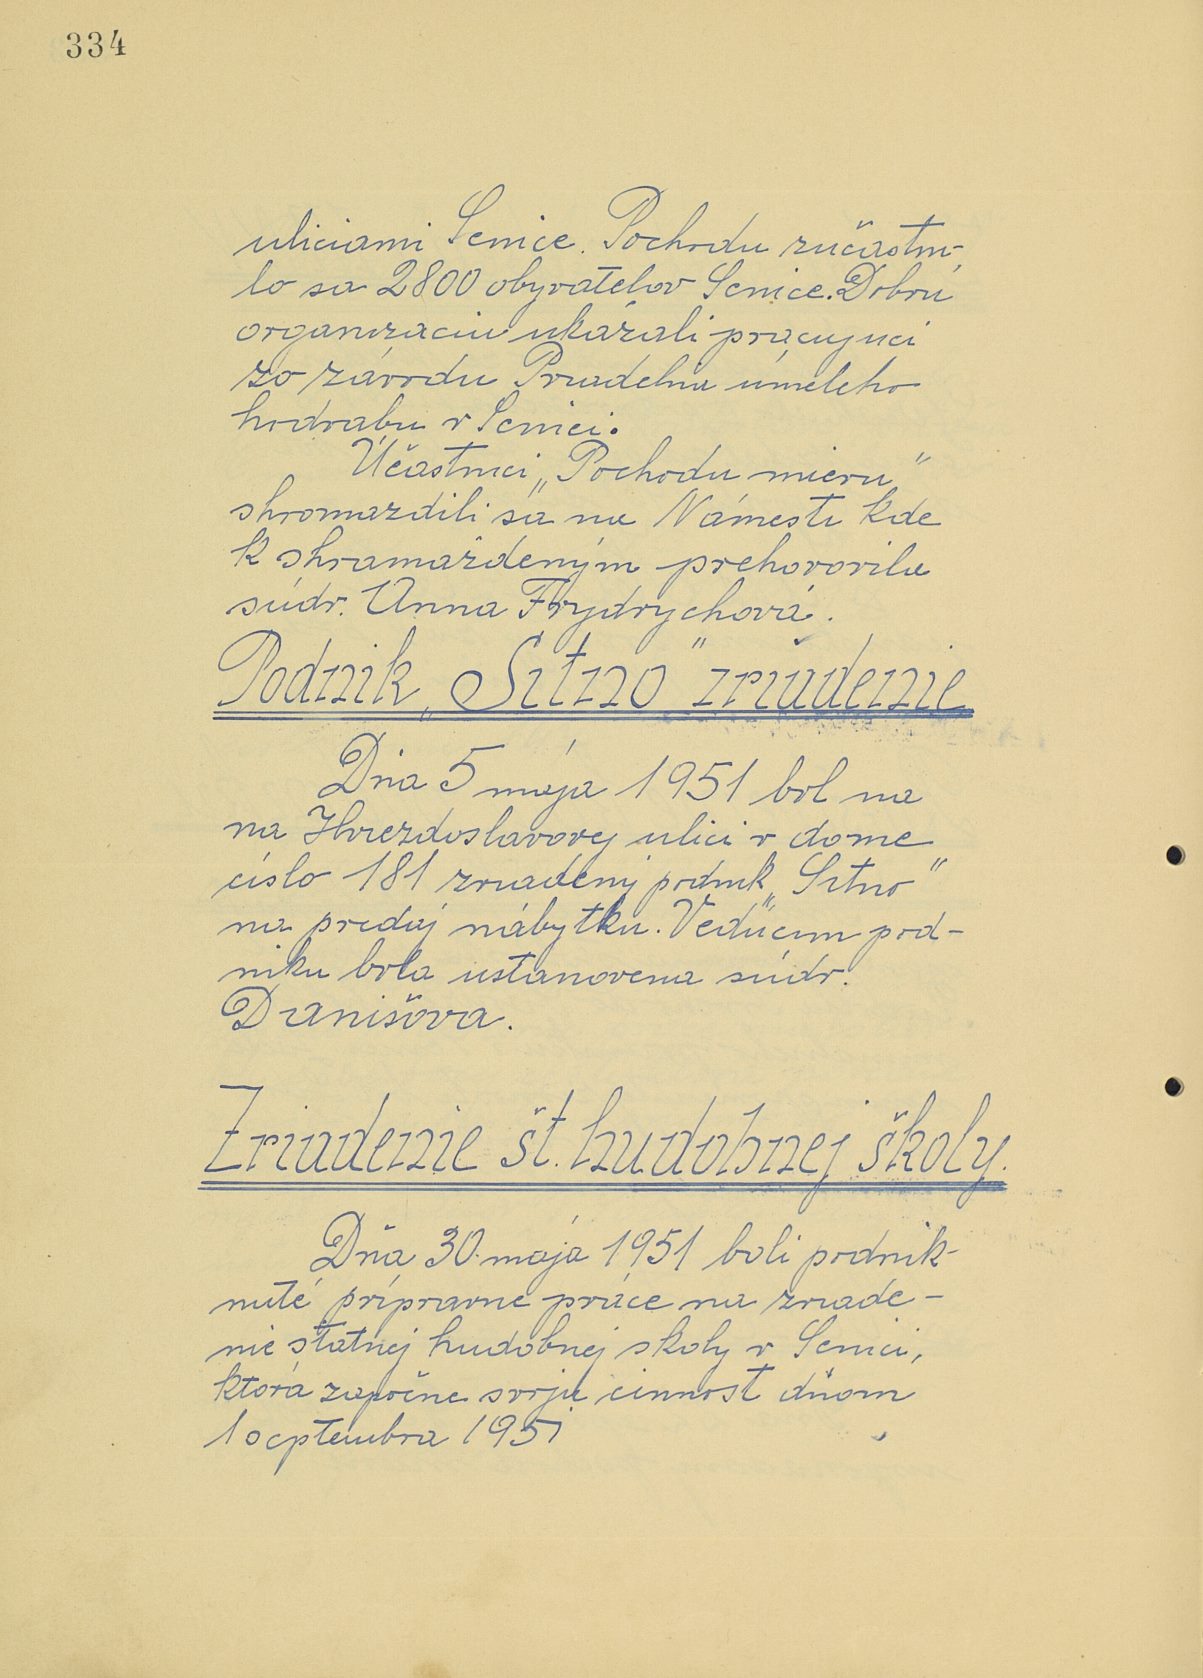 334
uliciami Senice. Pochodu zučastni-
lo sa 2800 obyvatelov Senice. Dobrú
organizaciu ukázali pracujuci
zo závodu Priadelňa umeleho
hodvabu v Senici.
Účastnici „Pochodu mieru"
shromazdili sa na Námesti kde
k shramaždeným prehovorila
súdr. Anna Frydrychová.
Podnik „Sitno" zriadenie
Dňa 5 mája 1951 bol na
na Hviezdoslavovej ulici v dome
číslo 181 zriadený podnik „Sitno"
na predaj nábytku. Vedúcim pod-
niku bola ustanovena súdr.
Danišova.
Zriadenie št. hudobnej školy.
Dňa 30. mája 1951 boli podnik-
nuté prípravne práce na zriade-
nie štatnej hudobnej skoly v Senici,
ktorá započne svoju cinnost dňom
1 septembra 1951